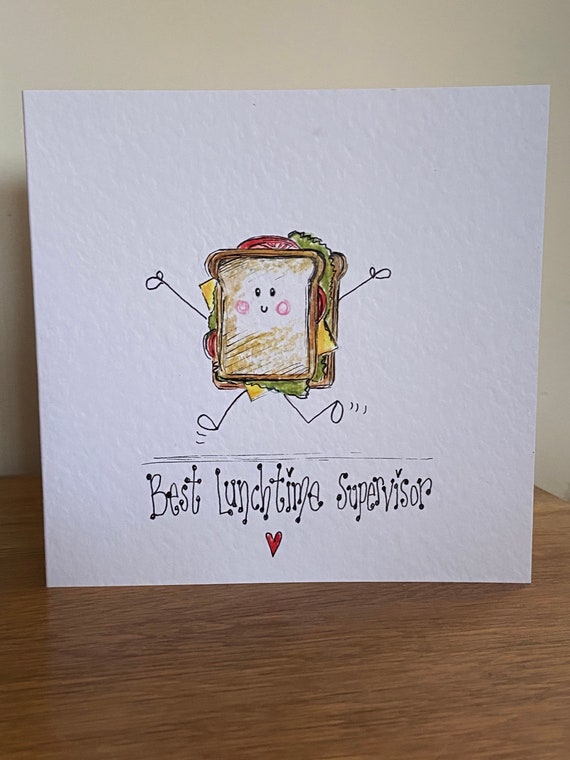 Best Lunchtime Supervisor